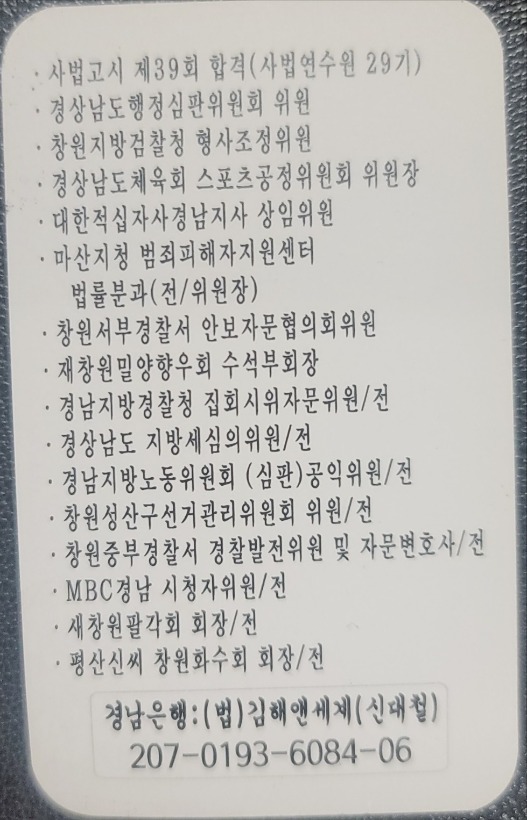 · 사법고시 제39회 합격(사법연수원 29기)
· 경상남도행정심판위원회 위원
· 창원지방검찰청 형사조정위원
· 경상남도체육회 스포츠공정위원회 위원장
· 대한적십자사경남지사 상임위원
· 마산지청 범죄피해자지원센터
법률분과(전/위원장)
· 창원서부경찰서 안보자문협의회위원
· 재창원밀양향우회 수석부회장
· 경남지방경찰청 집회시위자문위원/전
· 경상남도 지방세심의위원/전
· 경남지방노동위원회 (심판)공익위원/전
· 창원성산구선거관리위원회 위원/전
· 창원중부경찰서 경찰발전위원 및 자문변호사/전
· MBC경남 시청자위원/전
· 새창원팔각회 회장/전
· 평산신씨 창원화수회 회장/전
경남은행:(법)김해앤세계(신대철)
207-0193-6084-06